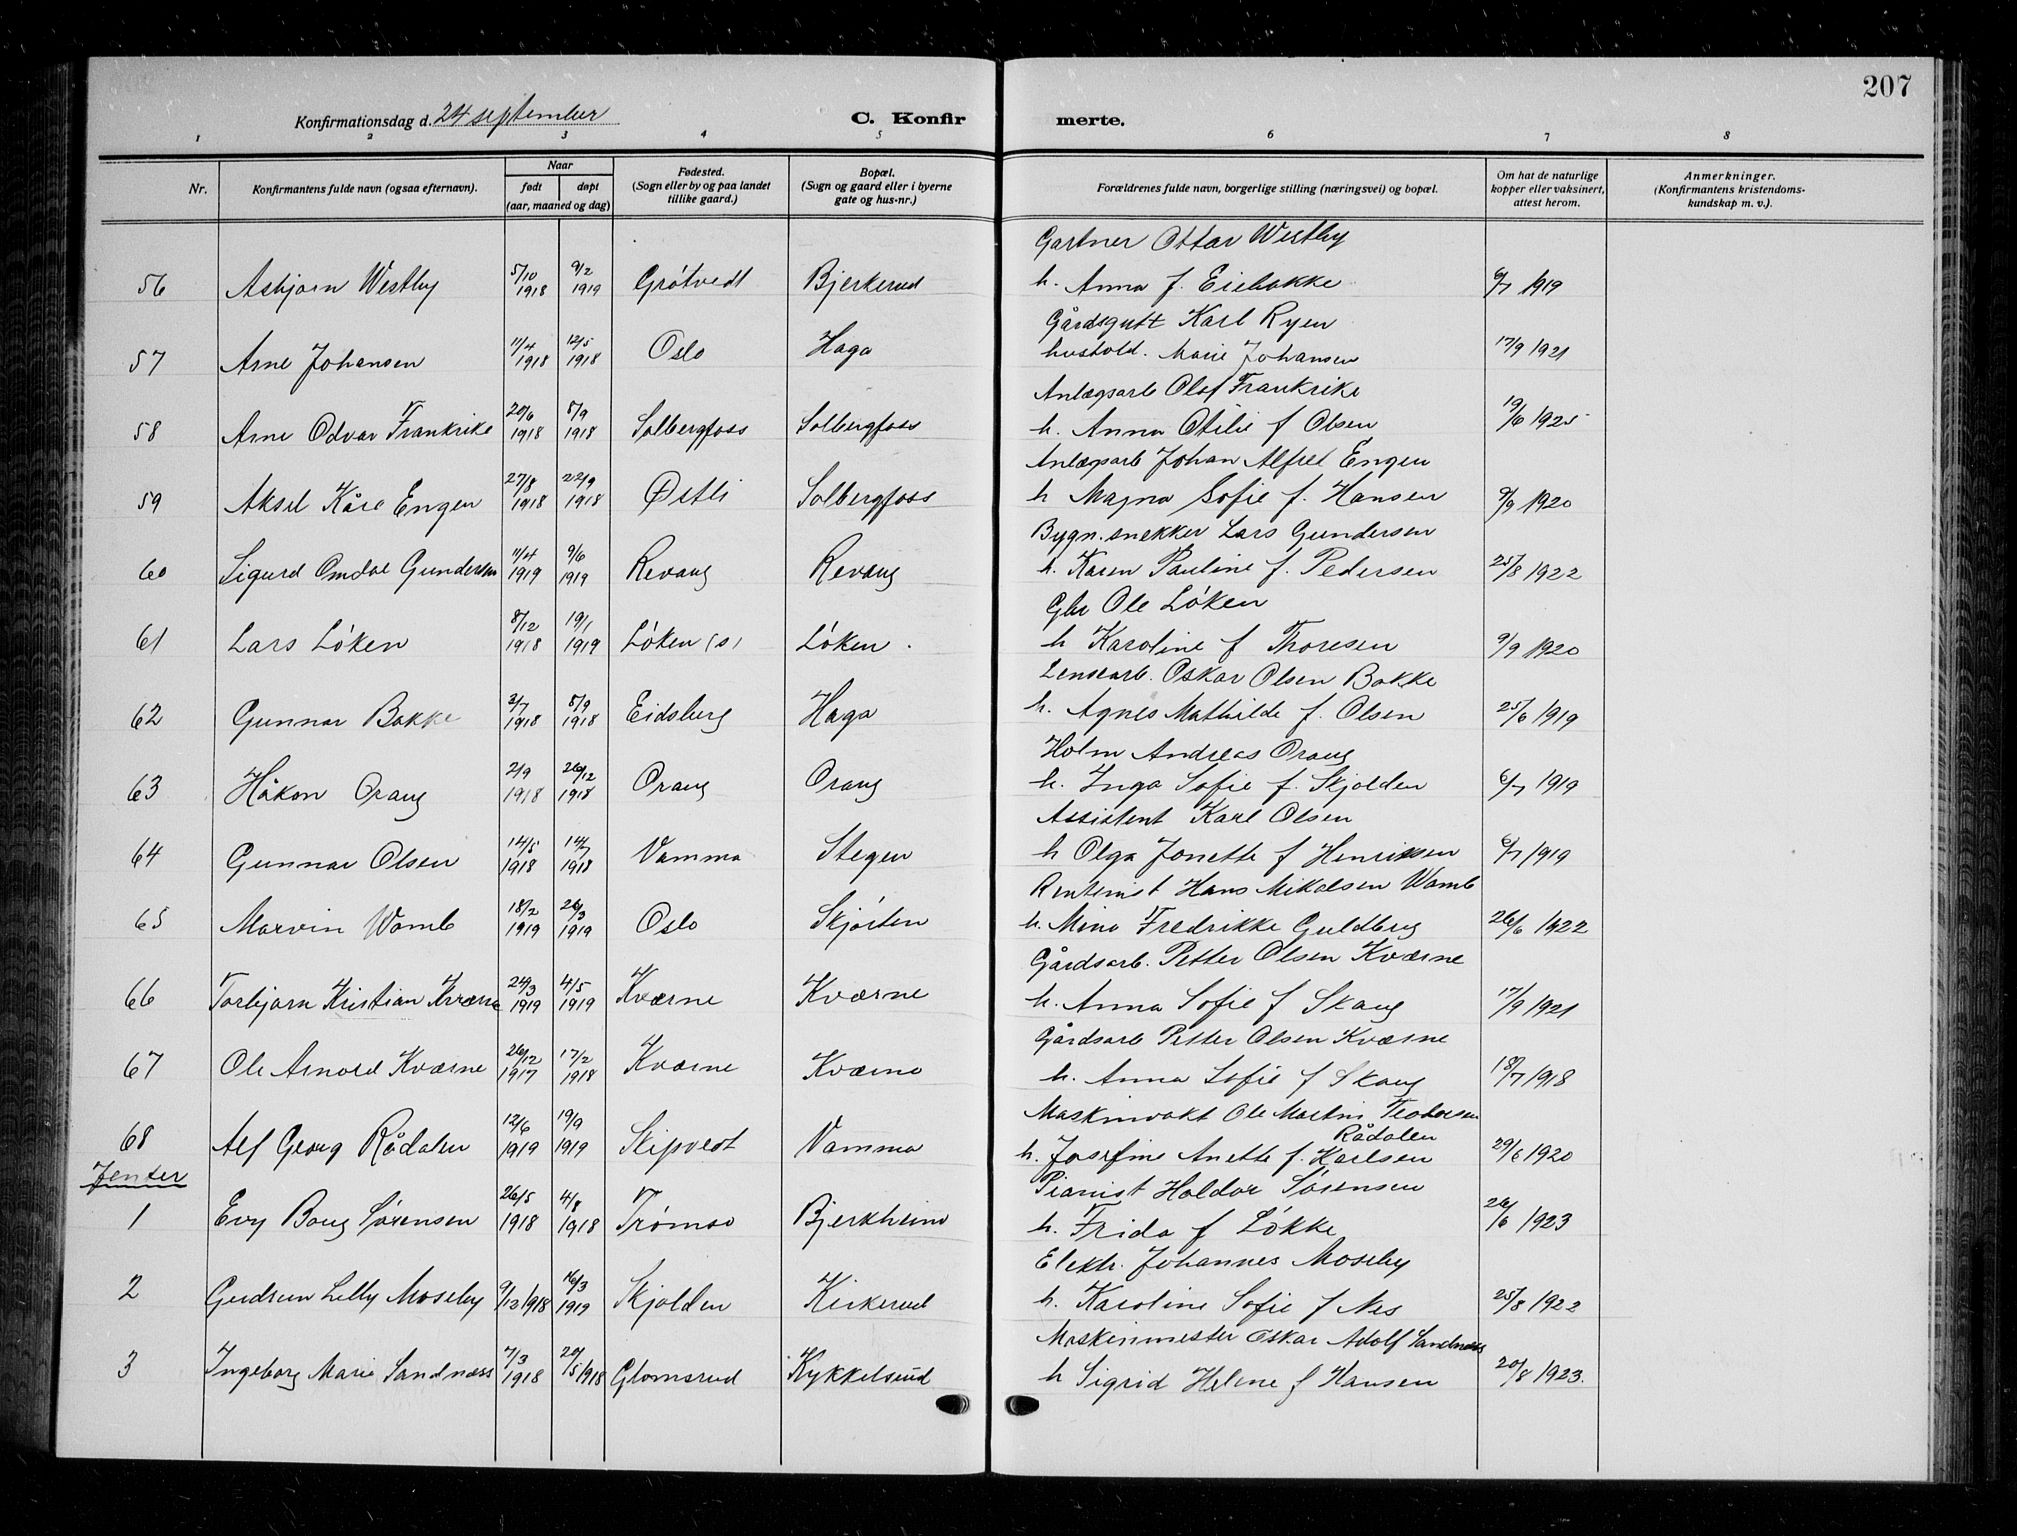 207
Konfirmationsdag d. 24 september
C. Konfir merte.
1 2 3 4 5 6 7 8
Nr.
Konfirmantens fulde navn (ogsaa efternavn).
Naar
født døpt
(aar, maaned og dag)
Fødested.
(Sogn eller by og paa landet
tillike gaard.)
Bopæl.
(Sogn og gaard eller i byerne
gate og hus-nr.)
Forældrenes fulde navn, borgerlige stilling (næringsvei) og bopæl.
Om hat de naturlige
kopper eller vaksinert,
attest herom.
Anmerkninger.
(Konfirmantens kristendoms-
kundskap m. v.).
Gartner Ottar Westby
56 Asbjørn Westby 5/10 1918 9/2 1919 Grøtvedt Bjerkerud h. Anna f. Eiebakke 6/7 1919
Gårdsgutt Karl Ryen
57 Arne Johansen 11/4 1918 12/5 1918 Oslo Haga hushold. Marie Johansen 17/9 1921
Anlægsarb Olof Frankrike
58 Arne Odvar Frankrike 20/6 1918 8/9 1918 Solbergfoss Solbergfoss h. Anna Otilie f Olsen 19/6 1925
Anlægsarb Johan Alfred Engen
59 Aksel Kåre Engen 27/8 1918 22/9 1918 Østli Solbergfoss h Magna Sofie f. Hansen 9/9 1920
Bygn. snekker Lars Gundersen
60 Sigurd Omdal Gundersen 11/4 1919 9/6 1919 Revaug Revaug h. Karen Pauline f. Pedersen 25/8 1922
Gbr Ole Løken
61 Lars Løken 8/12 1918 19/1 1919 Løken (s) Løken. h Karoline f Thoresen 9/9 1920
Lensearb. Oskar Olsen Bakke
62 Gunnar Bakke 2/7 1918 8/9 1918 Eidsberg Haga h. Agnes Mathilde f. Olsen 25/6 1919
Holm Andreas Oraug
63 Håkon Oraug 2/9 1918 26/12 1918 Oraug Oraug h. Inga Sofie f. Skjolden 6/7 1919
Assistent Karl Olsen
64 Gunnar Olsen 14/5 1918 14/7 1918 Vamma Stegen h Olga Jonette f Henriksen 6/7 1919
Rentenist Hans Mikalsen Wamb
65 Marvin Wamb 18/2 1919 26/3 1919 Oslo Skjørten h. Mina Fredrikke Guldberg 26/6 1922
Gårdsarb. Petter Olsen Kværne
66 Torbjørn Kristian Kværne 24/3 1919 4/5 1919 Kværne Kværne h. Anna Sofie f Skaug 17/9 1921
Gårdsarb Petter Olsen Kværne
67 Ole Arnord Kværne 26/12 1917 17/2 1918 Kværne Kværne h. Anna Sofie f Skaug 18/7 1918
Maskinvakt Ole Martin
Rådalen
68 Alf Georg Rådalen 12/6 1919 19/9 1919 Skipvedt Vamma h. Josefine Anette f. Karlsen 29/6 1920
Jenter
Pianist Haldor Sørensen
1 Evy Boug Sørensen 26/5 1918 4/8 1918 Trømsø Bjerkheim h. Frida f Løkke 26/6 1923
Elektr. Johannes Moseby
2 Gudrun Lelly Moseby 9/12 1918 16/3 1919 Skjolden Kirkerud h. Karoline Sofie f Nes 25/8 1922
Maskinmester Oskar Adolf Sandnæss
3 Ingeborg Marie Sandnæss 7/3 1918 20/5 1918 Glomsrud Kykkelsrud h Sigrid Helene f Hansen 20/8 1923.